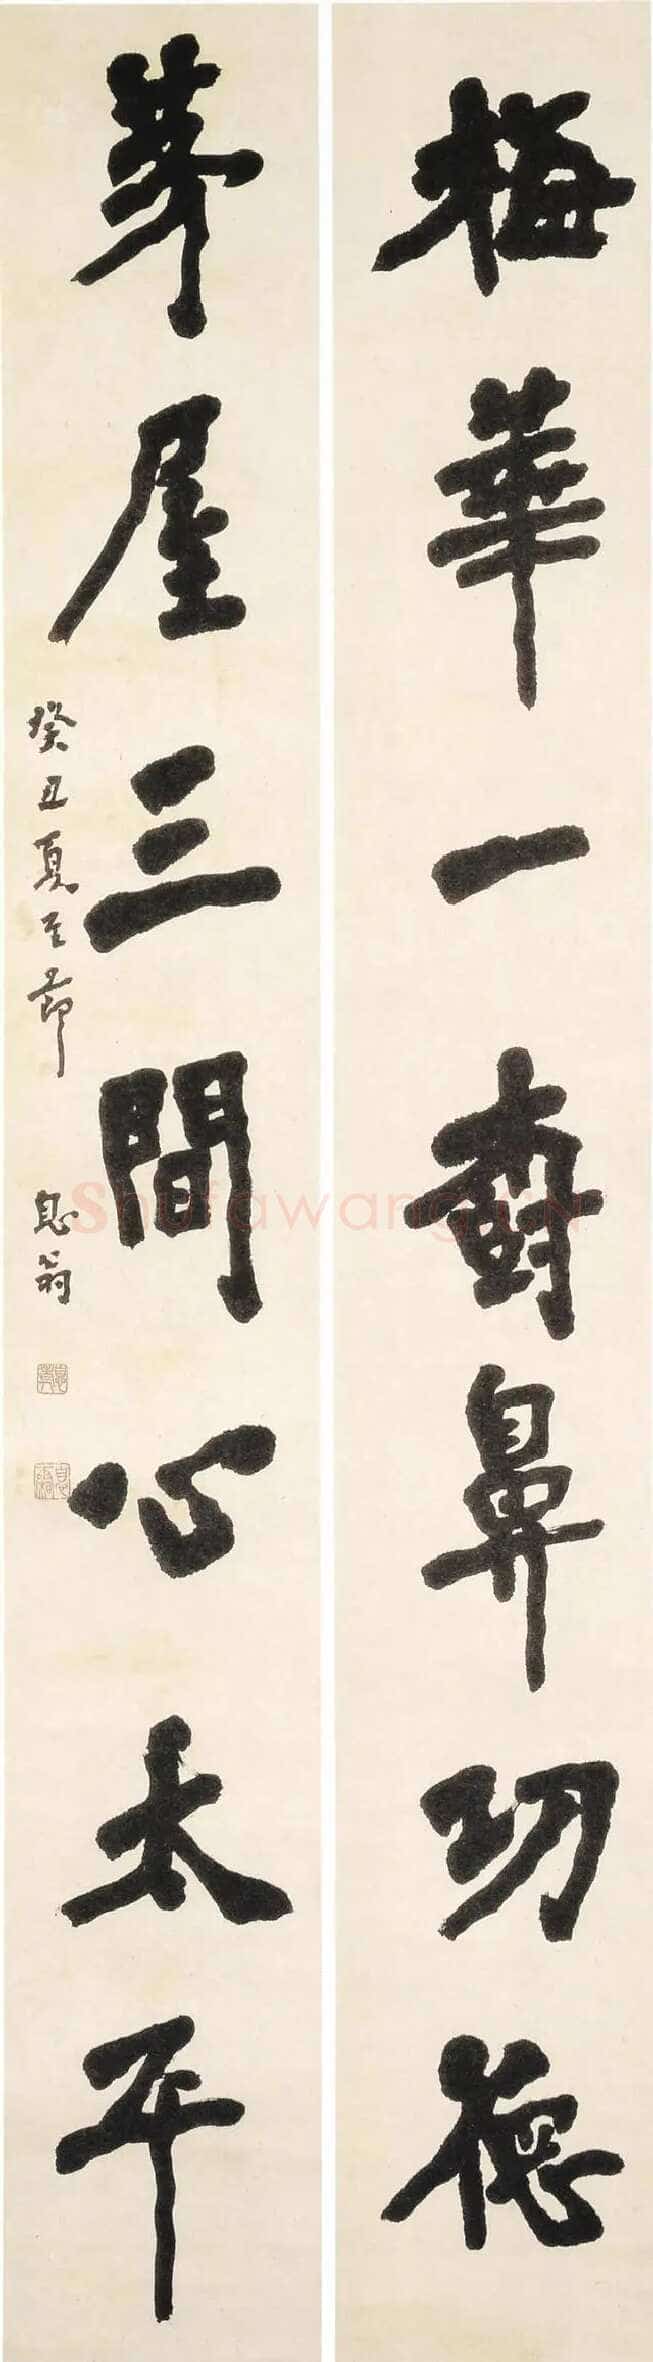 梅華一樹鼻功德
茅屋三間心太平
癸丑夏至節
息翁
Shufawang.CN